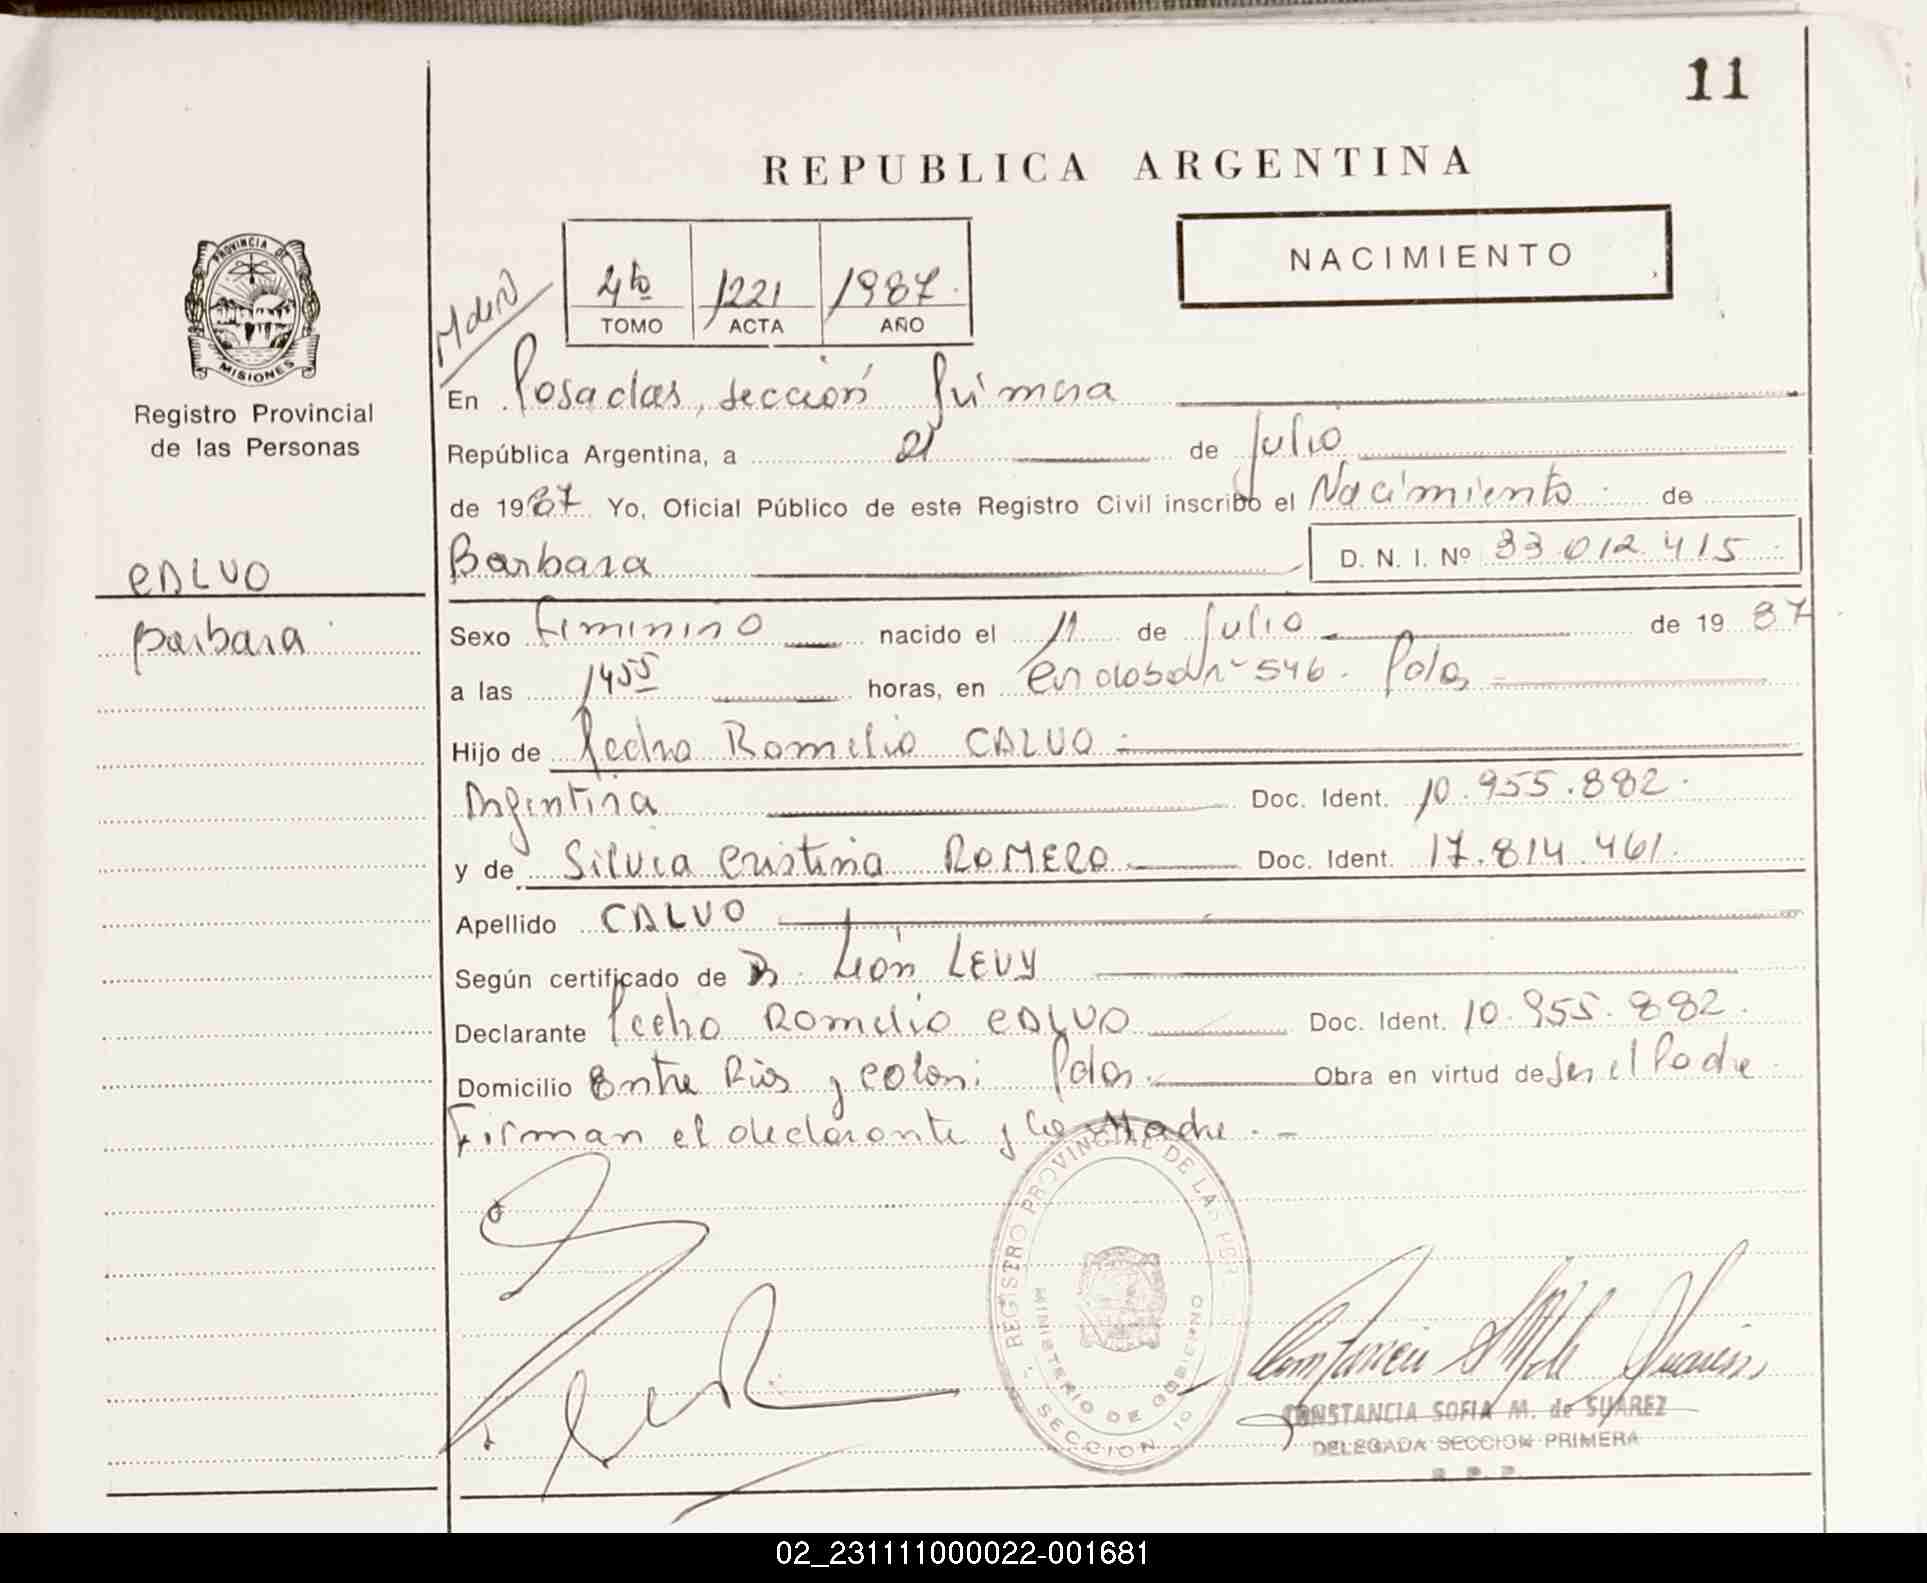 11
REPUBLICA ARGENTINA
NACIMIENTO
4to 1221 1987.
TOMO ACTA AÑO
PROVINCIA DE
MISIONES
Registro Provincial
de las Personas
CALVO
Barbara
En Posadas, sección primera
República Argentina, a 21 de Julio
de 1987 Yo, Oficial Público de este Registro Civil inscribo el Nacimiento de
Barbara D. N. I. Nº 33.012.415
Sexo Feminino nacido el 11 de Julio de 1987
a las 1455 horas, en 546. Pdas
Hijo de Pedro Romelio CALVO
Argentina Doc. Ident. 10.955.882.
y de Silvia Cristina ROMERO Doc. Ident. 17.814.461.
Apellido CALVO
Según certificado de Dr. León LEVY
Declarante Pedro Romelio CALVO Doc. Ident. 10.955.882.
Domicilio Entre Rios y Colon: Pdas. Obra en virtud de ser el Padre
Firman el declarante y la Madre. -
REGISTRO PROVINCIAL DE LAS PER
MINISTERIO DE GOBIERNO
SECCION 1º
CONSTANCIA SOFIA M. de SUAREZ
DELEGADA SECCION PRIMERA
R. P. P.
02_231111000022-001681